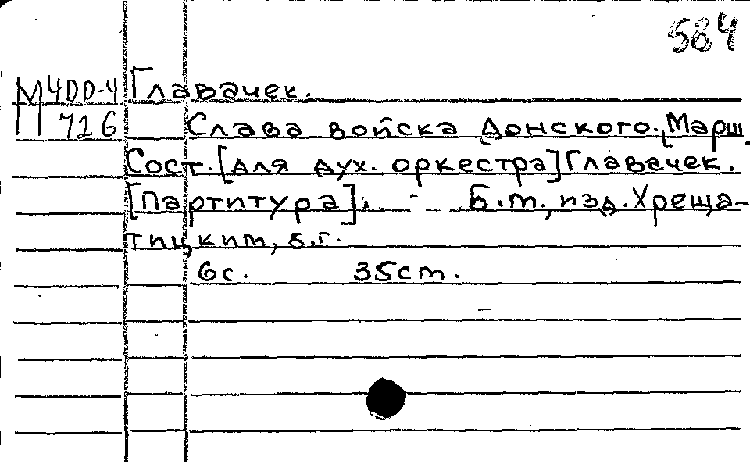 584
М400-4 Главачек.
726 Слава войска Донского. [Марш.
Сост. [для дух. оркестра] Главачек.
[Партитура]. - Б.м., изд. Хреща-
тицким, б.г.
6с. 35см.